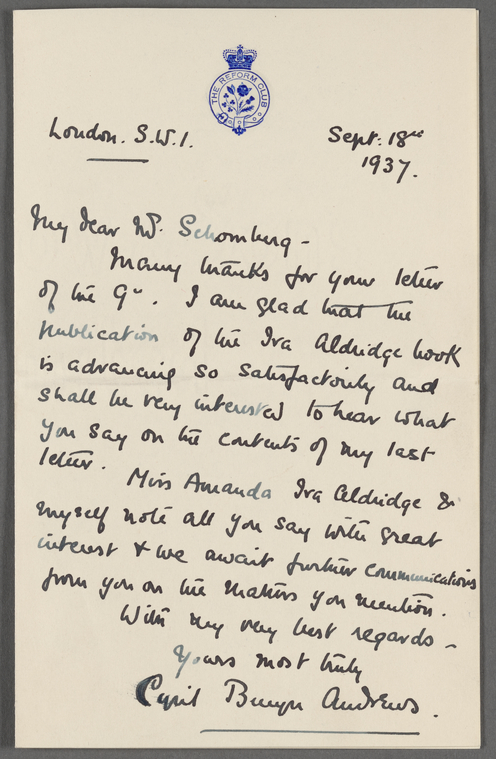 THE REFORM CLUB
London. S.W.1.
Sept. 18th
1937.
My dear Mr. Schomburg -
Many thanks for your letter
of the 9th. I am glad that the
publication of the Ira Aldridge book
is advancing so satisfactorily and
shall be very interested to hear what
you say on the contents of my last
letter.
Miss Amanda Ira Aldridge &
myself note all you say with great
interest & we await further communications
from you on the matters you mention.
With my very best regards -
Yours most truly
Cyril Bruyn Andrews.